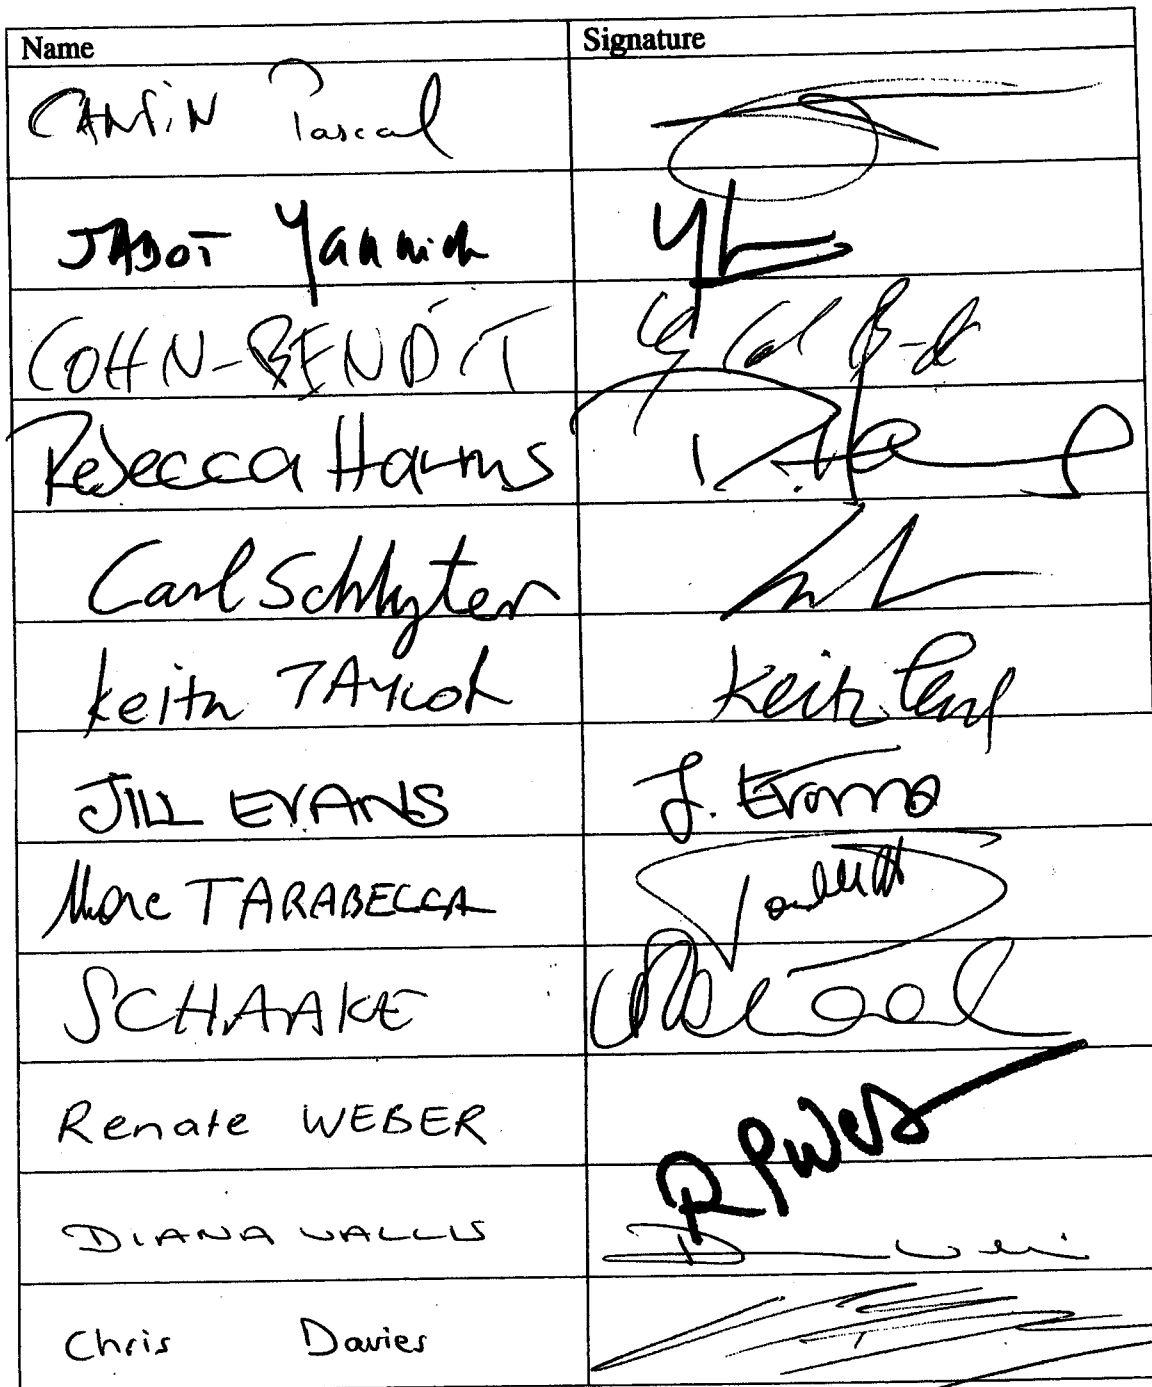 Name Signature
CANFIN Pascal
JADOT Yannick
COHN-BENDIT
Rebecca Harms
Carl Schlyter
Keith TAYLOR Keith
JILL EVANS J. Evans
Marc TARABELLA
SCHAAKE
Renate WEBER
DIANA WALLIS
Chris Davies